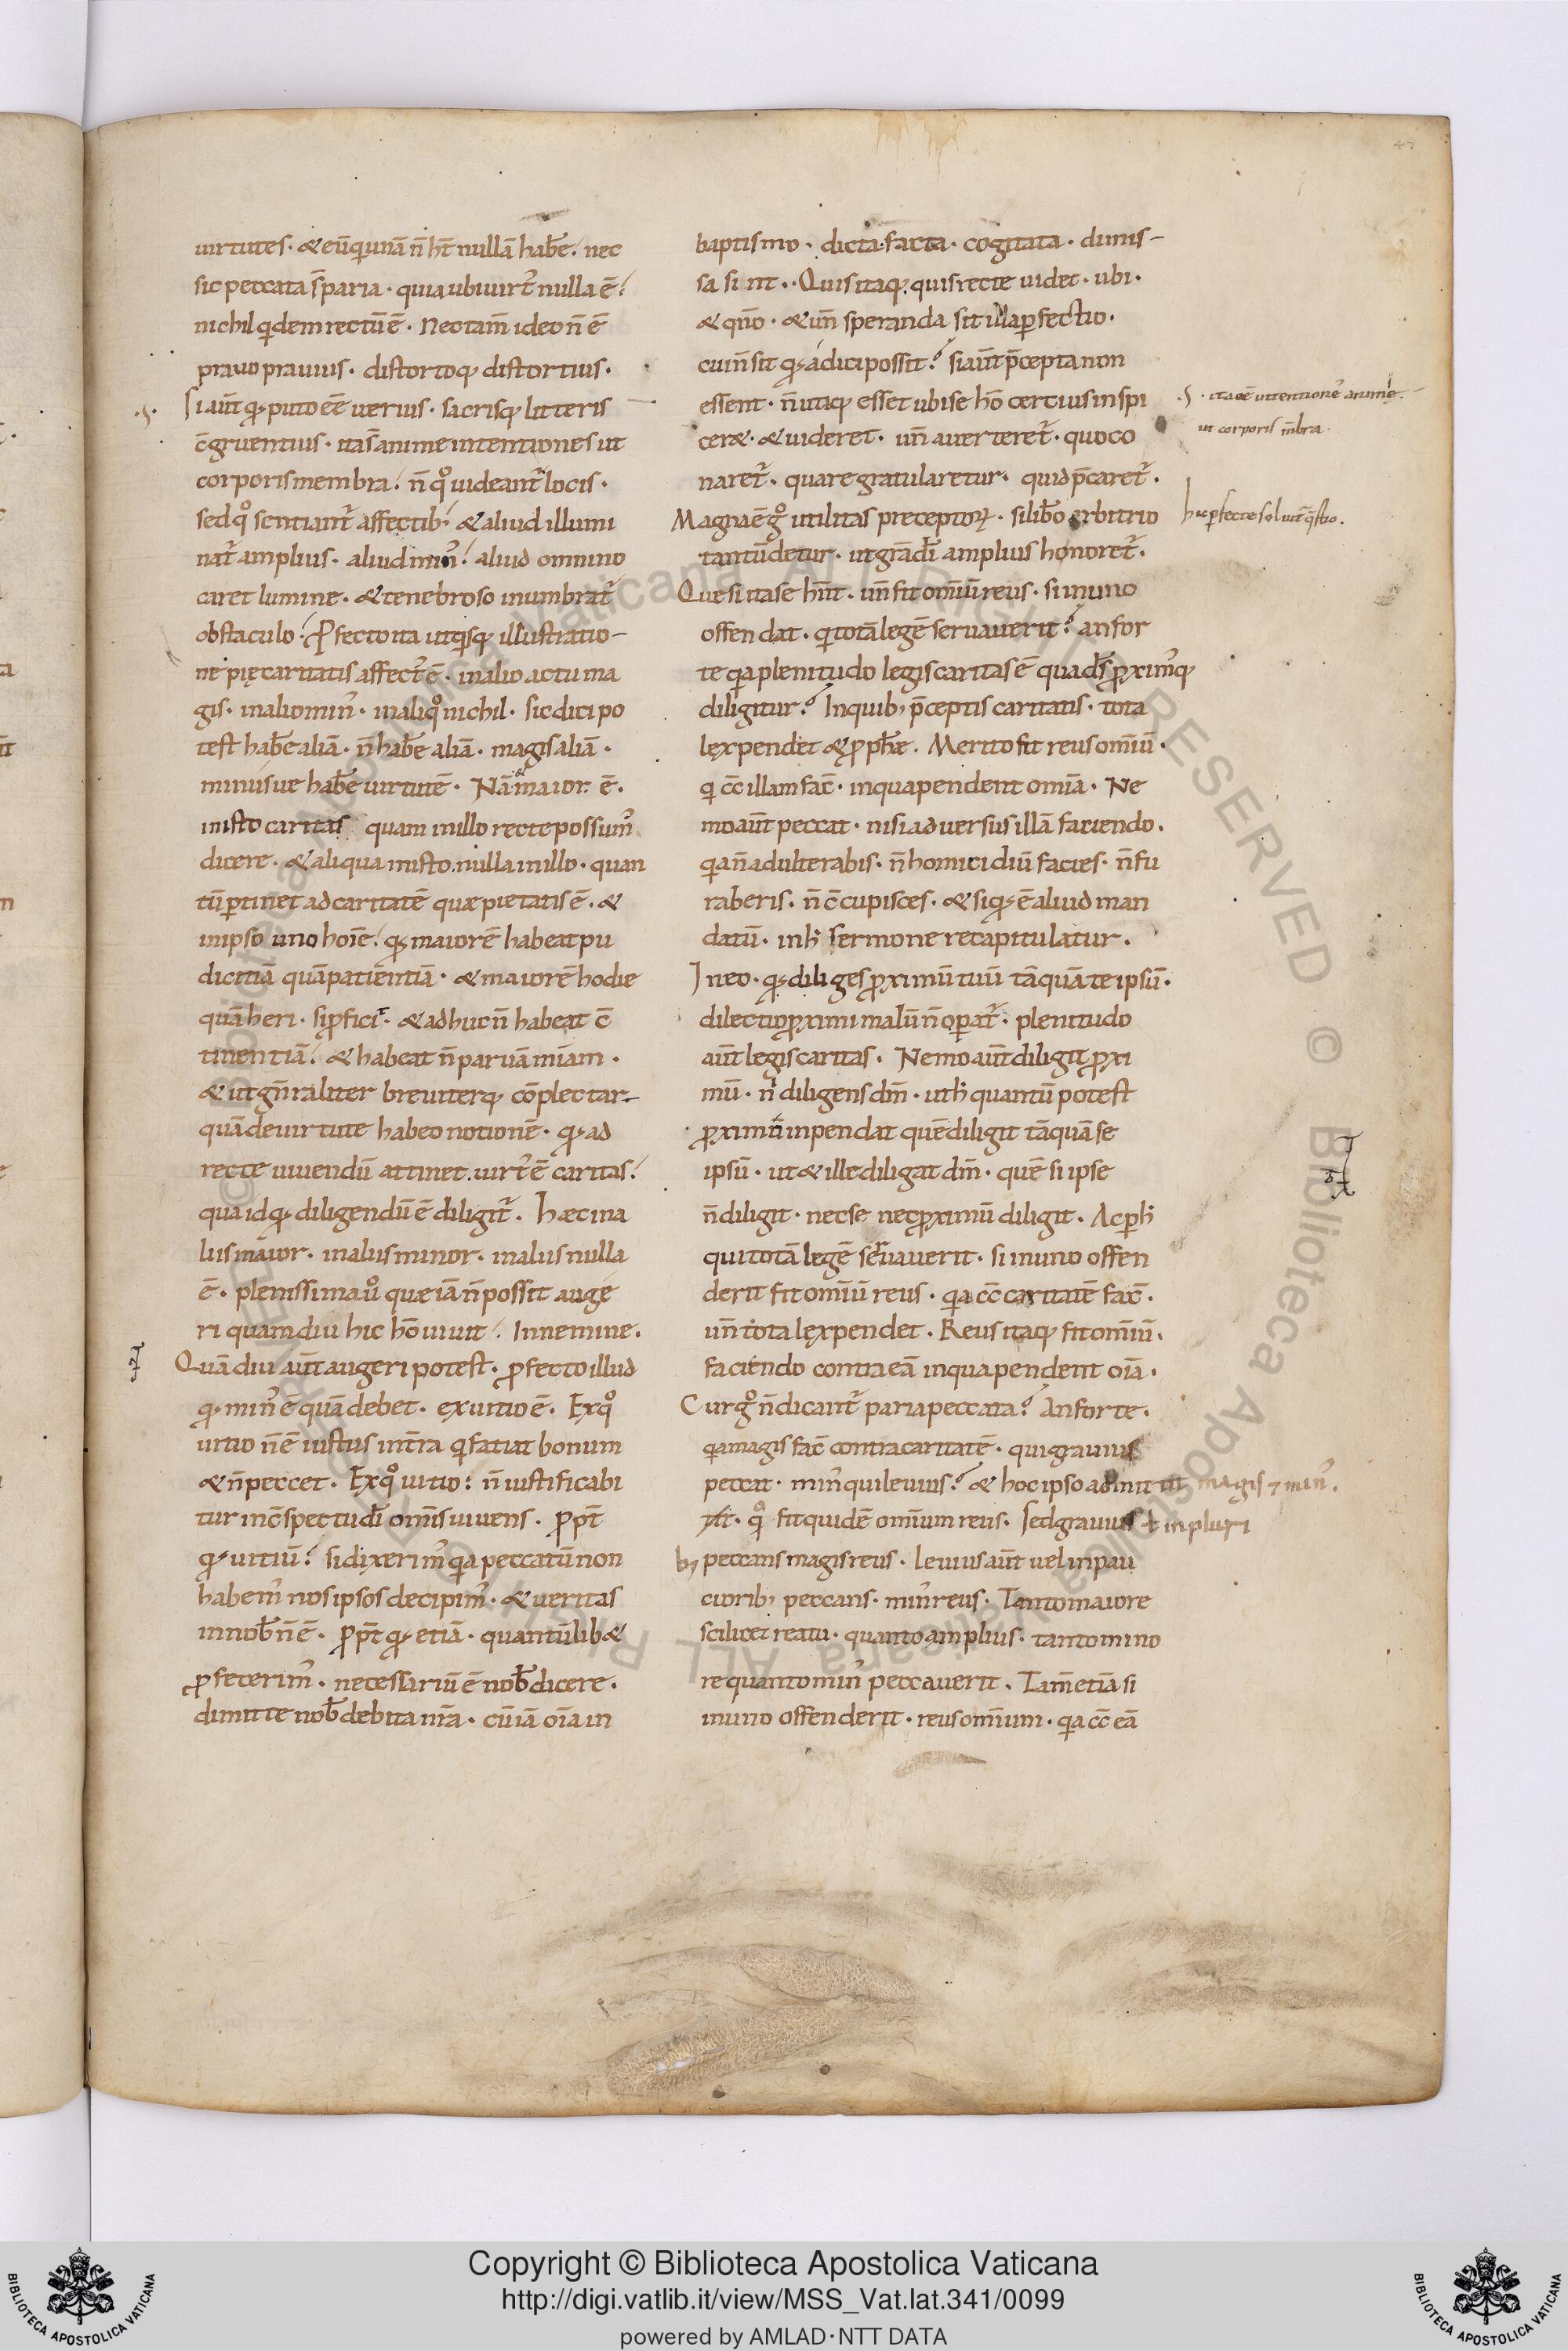 uirtutes · & eū qui unā n̄ ht̄ nullā habe᷒re · nec
sic peccata s̄ paria · quia ubi uirt᷒ nulla ē /
nichil qidem rectū ē · Nec tam̄ ideo n̄ ē
prauo prauius · distortoq; distortius ·
Si aūt q; puto eē uerius · sacrisq; litteris
c̄gruentius · ita s̄ anime intentiones ut
corporis membra / n̄ qͦ uideant᷒ locis ·
sed qͦ sentiant᷒ affectib; & aliud illumi
nat᷒ amplius · aliud min᷒ / aliud omnino
caret lumine · & tenebroso inumbrat᷒
obstaculo / Pfecto ita ut qisq; illustratio-
ne pię caritatis affect᷒ ē · in alio actu ma
gis · in alio min᷒ · in aliqͦ nichil · sic dici po
test habe᷒ aliā · n̄ habe᷒ aliā · magis aliā ·
minusue habe᷒ uirtutē · Nā maior ē ·
in isto caritas quam in illo recte possum᷒
dicere · & aliqua in isto nulla in illo · quan
tū ptinet ad caritatē quæ pietatis ē · &
in ipso uno hoīe / q; maiorē habeat pu
dicitiā quā patientiā · & maiorē hodie
quā heri · si pfic᷒ · & adhuc n̄ habeat c̄
tinentiā / & habeat n̄ paruā mīam ·
& ut gn̄raliter breuiterq; cōplectar-
quā de uirtute habeo notionē · q; ad
recte uiuendū attinet · uirt᷒ ē caritas /
qua id q; diligendū ē diligit᷒ · Hæc in a
liis maior · in aliis minor · in aliis nulla
ē · plenissima uͦ quæ iā n̄ possit auge
ri quamdiu hic hō uiuit / in nemine ·
Quādiu aūt augeri potest · pfecto illud
q; min᷒ ē quā debet · ex uitio ē · Ex qͦ
uitio n̄ ē iustus in tr̄a qi faciat bonum
& n̄ peccet · Ex qͦ uitio / n̄ iustificabi
tur in c̄spectu dī om̄is uiuens · Ppt̄
q; uitiū / si dixerim᷒ qa peccatū non
habem᷒ nos ipsos decipim᷒ · & ueritas
in nob̄ n̄ ē · Ppt̄ q; etiā · quantūlib&
pfecerim᷒ · necessariū ē nob̄ dicere ·
dimitte nob̄ debita nr̄a · cū iā oīa in
baptismo · dicta · facta · cogitata · dimis-
sa sint · · Quis itaq; quis recte uidet · ubi ·
& qn̄o · & un̄ speranda sit illa pfectio ·
cui n̄ sit q; addici possit / si aūt p̄cepta non
essent · n̄ utiq; esset ubi se hō certius inspi
ceræ · & uideret · un̄ auerteret᷒ · quo co
naret᷒ · quare gratularetur · quid p̄caret᷒ ·
Magna ē gͦ utilitas preceptoꝝ · si lib̄o arbitrio
tantū detur · ut grā dī amplius honoret᷒ ·
Que si ita se hn̄t · un̄ fit om̄iū reus · si in uno
offendat · qi totā legē seruauerit / an for
te qa plenitudo legis caritas ē qua ds̄ pxim᷒q;
diligitur / In quib; p̄ceptis caritatis · tota
lex pendet & pph̄æ · Merito fit reus om̄iū ·
qi cc̄ illam fac̄ · in qua pendent omīa · Ne
mo aūt peccat · nisi aduersus illā faciendo ·
qa n̄ adulterabis · n̄ homicidiū facies · n̄ fu
raberis · n̄ c̄cupisces · & siq; ē aliud man
datū · in h̊ sermone recapitulatur ·
In eo · q; diliges pximū tuū tāquā te ipsū ·
dilectio pximi malū n̄ opat᷒ · plenitudo
aūt legis caritas · Nemo aūt diligit pxi
mū · n̊ diligens dm̄ · ut h̊ quantū potest
pximū inpendat quē diligit tāquā se
ipsū · ut & ille diligat dm̄ · quē si ipse
n̄ diligit · nec se nec pximū diligit · Ac p h̊
qui totā legē seruauerit · si in uno offen
derit fit om̄iū reus · qa cc̄ caritatē fac̄ ·
un̄ tota lex pendet · Reus itaq; fit om̄iū ·
faciendo contra eā in qua pendent oīa ·
Cur gͦ n̄ dicant᷒ paria peccata / An forte ·
qa magis fac̄ contra caritatē · qui grauius
peccat · min᷒ qui leuius / & hoc ipso admittit magis ⁊ min᷒ ·
qͦ fit quidē om̄ium reus · sed grauius ł in pluri
b; peccans magis reus · leuius aūt uel in pau
ciorib; peccans · min᷒ reus · Tanto maiore
scilicet reatu · quanto amplius · tanto mino
re quanto min᷒ peccauerit · Tam̄ etiā si
in uno offenderit · reus omnium · qa cc̄ eā
·S· ita eē intentionē animę ·
ut corporis m̄bra ·
hic pfecte soluit q̄stio ·
Copyright © Biblioteca Apostolica Vaticana
http://digi.vatlib.it/view/MSS_Vat.lat.341/0099
powered by AMLAD·NTT DATA
BIBLIOTECA APOSTOLICA VATICANA
BIBLIOTECA APOSTOLICA VATICANA